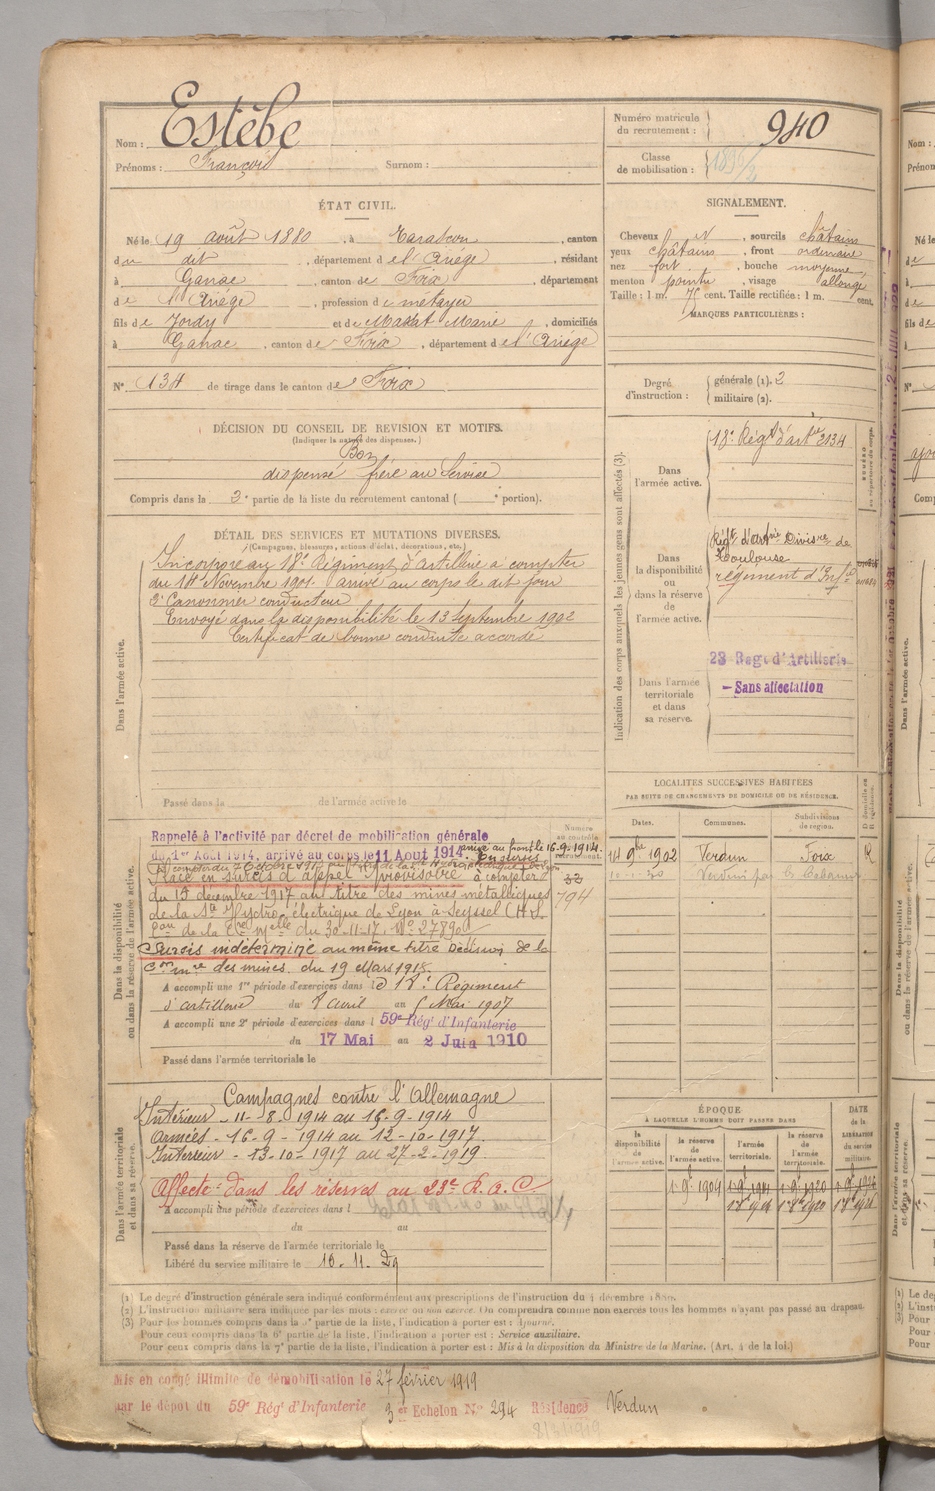 Nom : Estèbe
Prénoms : François Surnom :
Numéro matricule du recrutement : 940
Classe de mobilisation :
ÉTAT CIVIL.
Né le 19 août 1880, à Tarascon, canton
du dit, département de l'Ariège, résidant
à Ganac, canton de Foix, département
de l'Ariège, profession de métayer
fils de Jordy et de Marrat Marie, domiciliés
à Ganac, canton de Foix, département de l'Ariège
N° 134 de tirage dans le canton de Foix
SIGNALEMENT.
Cheveux et, sourcils châtains
yeux châtains, front ordinaire
nez fort, bouche moyenne,
menton pointu, visage allongé
Taille : 1 m. 75 cent. Taille rectifiée : 1 m. cent.
MARQUES PARTICULIÈRES :
Degré d'instruction : générale (1). 3
militaire (2).
DÉCISION DU CONSEIL DE REVISION ET MOTIFS.
(Indiquer la nature des dispenses.)
Bon
dispensé frère au service
Compris dans la 3e partie de la liste du recrutement cantonal ( e portion).
DÉTAIL DES SERVICES ET MUTATIONS DIVERSES.
(Campagnes, blessures, actions d'éclat, décorations, etc.)
Dans l'armée active.
Incorporé au 18e Régiment d'artillerie à compter
du 14 Novembre 1901. arrivé au corps le dit jour
2e Canonnier conducteur
Envoyé dans la disponibilité le 13 Septembre 1902
Certificat de bonne conduite accordé
Passé dans la de l'armée active le
Indication des corps auxquels les jeunes gens sont affectés (3).
Dans l'armée active.
18e Régt d'artie 2134
Dans la disponibilité ou dans la réserve de l'armée active.
Régt d'artie Divisre de
Toulouse
régiment d'Infie
Dans l'armée territoriale et dans sa réserve.
23 Regt d'Artillerie
— Sans affectation
LOCALITÉS SUCCESSIVES HABITÉES
PAR SUITE DE CHANGEMENTS DE DOMICILE OU DE RÉSIDENCE.
Dates. Communes. Subdivisions de région. D domicile ou R résidence.
14 9bre 1902 Verdun Foix R
Verdun par les Cabannes
Dans la disponibilité ou dans la réserve de l'armée active.
Rappelé à l'activité par décret de mobilisation générale
du 1er Août 1914, arrivé au corps le 11 Août 1914. arrivé au front le 16.9.1914.
Placé en sursis d'appel provisoire à compter
du 15 décembre 1917 au titre des mines métalliques
de la Sté Hydro-électrique de Lyon à Seyssel (H.S.
30-11-17. No 27890
Sursis indéterminé au même titre Décision de la
des mines. du 19 Mars 1918.
A accompli une 1re période d'exercices dans le 18e Régiment
d'artillerie du 8 avril au 5 Mai 1907
A accompli une 2e période d'exercices dans l 59e Régt d'Infanterie
du 17 Mai au 2 Juin 1910
Passé dans l'armée territoriale le
794
Dans l'armée territoriale et dans sa réserve.
Campagnes contre l'Allemagne
Intérieur - 11-8-1914 au 16-9-1914
Armées - 16-9-1914 au 12-10-1917.
Intérieur - 13-10-1917 au 27-2-1919.
Affecté dans les réserves au 23e R.A.C.
A accompli une période d'exercices dans l
du au
Passé dans la réserve de l'armée territoriale le
Libéré du service militaire le 10. 11. 29
ÉPOQUE
À LAQUELLE L'HOMME DOIT PASSER DANS
la disponibilité de l'armée active. la réserve de l'armée active. l'armée territoriale. la réserve de l'armée territoriale. DATE de la LIBÉRATION du service militaire.
1 9e 1904
(1) Le degré d'instruction générale sera indiqué conformément aux prescriptions de l'instruction du 4 décembre 1889.
(2) L'instruction militaire sera indiquée par les mots : exercé ou non exercé. On comprendra comme non exercés tous les hommes n'ayant pas passé au drapeau.
(3) Pour les hommes compris dans la 5e partie de la liste, l'indication à porter est : Ajourné.
Pour ceux compris dans la 6e partie de la liste, l'indication à porter est : Service auxiliaire.
Pour ceux compris dans la 7e partie de la liste, l'indication à porter est : Mis à la disposition du Ministre de la Marine. (Art. 4 de la loi.)
Mis en congé illimité de démobilisation le 27 février 1919
par le dépôt du 59e Régt d'Infanterie 3er Echelon No 294 Résidence Verdun